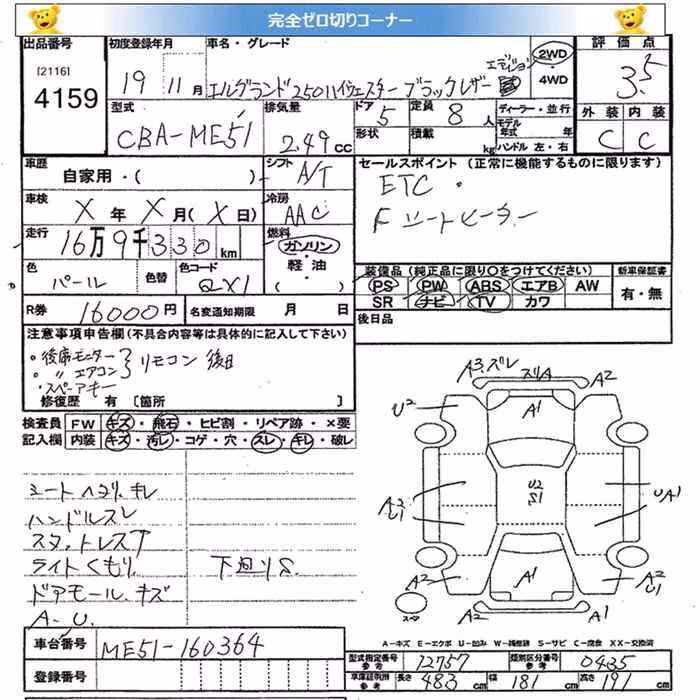 完全ゼロ切りコーナー
出品番号 初度登録年月 車名・グレード 評価点
[2116] 4159
19年11月 エルグランド250ハイウェイスターブラックレザーエディション
2WD
4WD
3.5
型式 排気量 ドア 定員 ディーラー・並行 外装 内装
CBA-ME51 2.49cc 5 8人
形状 積載 kg
モデル年式 年
ハンドル 左・右
C C
車歴 シフト セールスポイント(正常に機能するものに限ります)
自家用・( ) A/T
ETC
Fシートヒーター
車検 冷房
X年X月(X日) AAC
走行 燃料
16万9千330km ガソリン・軽油・( )
色 色替 色コード
パール QX1
装備品(純正品に限り○をつけてください) 新車保証書
PS PW ABS エアB AW 有・無
SR ナビ TV カワ
R券 16000円 名変通知期限 月 日
後日品
注意事項申告欄(不具合内容等は具体的に記入して下さい)
・後席モニター
・〃エアコン リモコン 後日
・スペアキー
修復歴 有〔箇所 〕
検査員 FW キズ・飛石・ヒビ割・リペア跡・×要
記入欄 内装 キズ・汚レ・コゲ・穴・スレ・キレ・破レ
シートヘコリ、キレ
ハンドルスレ
ライトくもり 下廻りS
ドアモール キズ
A・U
A3 ズレ ズリA A2
U2 A1
U2 S1
A3 U1 UA1
A2 A1 A2 U1
スペア A2 A1
A-キズ E-エクボ U-凹み W-補修跡 S-サビ C-腐食 XX-交換済
車台番号 ME51-160364
登録番号
型式指定番号 参考 12757 類別区分番号 参考 0435
車庫証明用 参考 長さ 483cm 幅 181cm 高さ 191cm